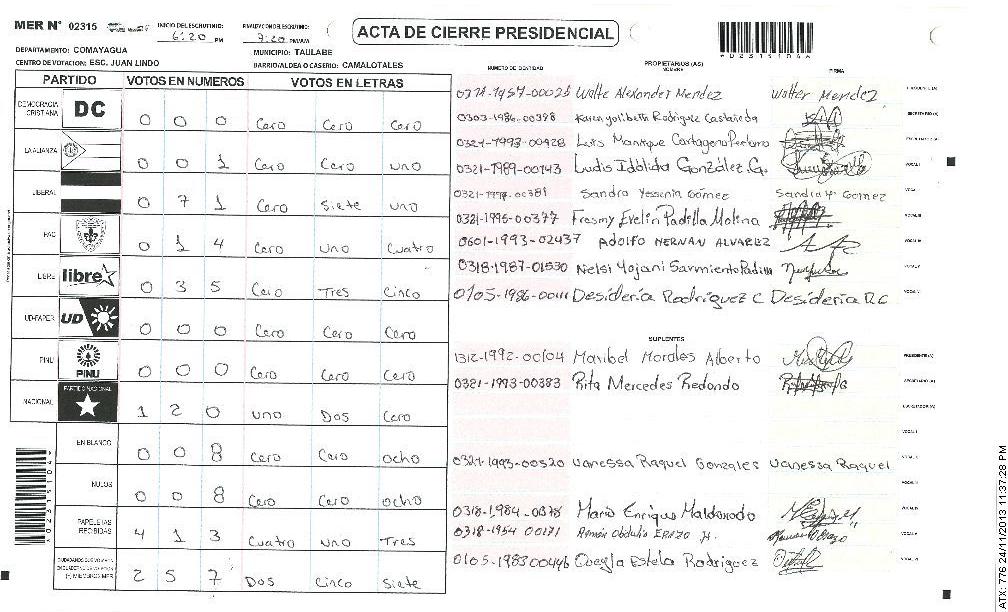 MER N° 02315 INICIO DEL ESCRUTINIO: 6:20 PM FINALIZACION DEL ESCRUTINIO: 9:20 PM/AM ACTA DE CIERRE PRESIDENCIAL
DEPARTAMENTO: COMAYAGUA MUNICIPIO: TAULABE
CENTRO DE VOTACION: ESC. JUAN LINDO BARRIO/ALDEA O CASERIO: CAMALOTALES
PARTIDO VOTOS EN NUMEROS VOTOS EN LETRAS
DEMOCRACIA CRISTIANA DC 0 0 0 Cero Cero Cero
LA ALIANZA 0 0 1 Cero Cero uno
LIBERAL 0 7 1 Cero Siete uno
PAC 0 1 4 Cero uno Cuatro
LIBRE libre 0 3 5 Cero Tres Cinco
UD-FAPER UD 0 0 0 Cero Cero Cero
PINU PINU 0 0 0 Cero Cero Cero
NACIONAL PARTIDO NACIONAL 1 2 0 uno Dos Cero
EN BLANCO 0 0 8 Cero Cero ocho
NULOS 0 0 8 Cero Cero ocho
PAPELETAS RECIBIDAS 4 1 3 Cuatro uno Tres
(+) MIEMBROS MER 2 5 7 Dos Cinco Siete
NUMERO DE IDENTIDAD PROPIETARIOS (AS) NOMBRE FIRMA
Walter Mendez PRESIDENTE (A)
0303-1986-00398 Rodriguez Castañeda SECRETARIO (A)
0321-1993-00928 Luis
0321-1989-00743 González G. VOCAL I
00381 Sandra Yessenia Gómez Sandra Y Gomez
0321-1995-00377 Evelin Padilla Molina
0601-1993-02437 ADOLFO HERNAN ALVAREZ
0318-1987-01530 Nelsi Yojani Sarmiento Padilla
0105-1986-00111 Desideria Rodriguez C Desideria R C
SUPLENTES
1312-1992-00104 Maribel Morales Alberto PRESIDENTE (A)
0321-1993-00383 Rita Mercedes Redondo SECRETARIO (A)
ESCRUTADOR (A)
0321-1993-00520 Vanessa Raquel Gonzales Vanessa Raquel
0318-1984 Mario Enrique Maldonado
0318-1954 00171 Ramón Obdulio
0105-1983 00446 Estela Rodriguez
A02315104
ATX: 776 24/11/2013 11:37:28 PM